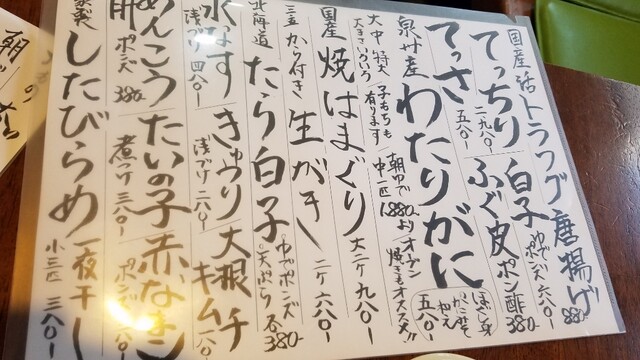 国産活トラフグ唐揚げ 880-
てっちり 二九八〇- 白子 ゆで ポンズ 六八〇-
てっさ 五八〇- ふぐ皮ポン酢 380-
泉州産 わたりがに
大中特大 大きさいろいろ 子もちも有ります
朝ゆで 中一匹 1,880より オーブン焼きもオススメ!!
五八〇-
国産 焼はまぐり 大二ケ 九八〇-
三重 から付き 生がき 二ケ 六八〇-
北海道 たら白子 ゆでポンズ 天ぷら 各380-
水なす 浅づけ 四八〇- きゅうり 浅づけ 二八〇- 大根キムチ
ポンズ 380- たいの子 煮つけ 三八〇- 赤なまこ ポンズ
したびらめ 一夜干し 小三匹 三八〇-
朝
の